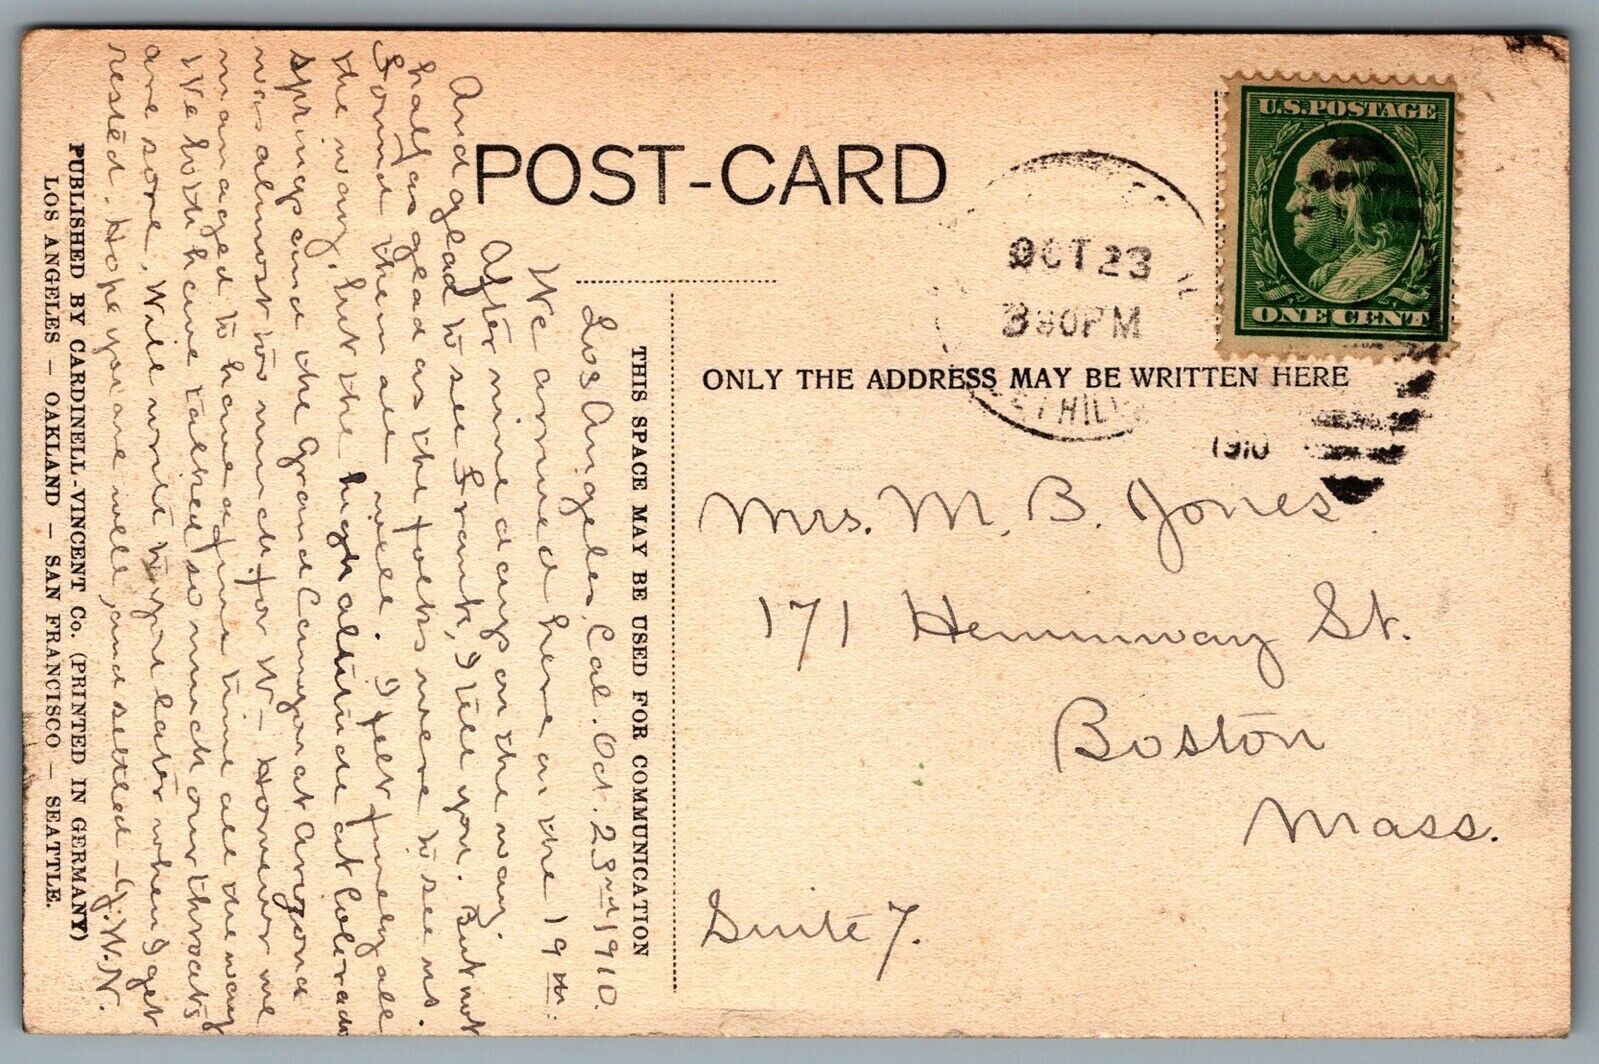 POST-CARD
U.S. POSTAGE
ONE CENT
OCT 23
3 30 PM
1910
THIS SPACE MAY BE USED FOR COMMUNICATION
ONLY THE ADDRESS MAY BE WRITTEN HERE
Mrs. M. B. Jones
171 Hemmway St.
Boston
Mass.
Suite 7.
Los Angeles, Cal. Oct. 23rd 1910.
We arrived here on the 19th.
After nine days on the way.
And glad to see Frank, I tell you. But not
half as glad as the folks were to see us.
Found them all well. I felt finely all
the way, but the high altitude at Colorado
springs and the Grand Canyon at Arizona
was almost too much for W- However we
managed to have a fine time all the way
We both have talked so much our throats
are sore, Will write to you later when I get
rested. Hope you are well, and settled - J. W. N.
PUBLISHED BY CARDINELL-VINCENT Co. (PRINTED IN GERMANY)
LOS ANGELES - OAKLAND - SAN FRANCISCO - SEATTLE.